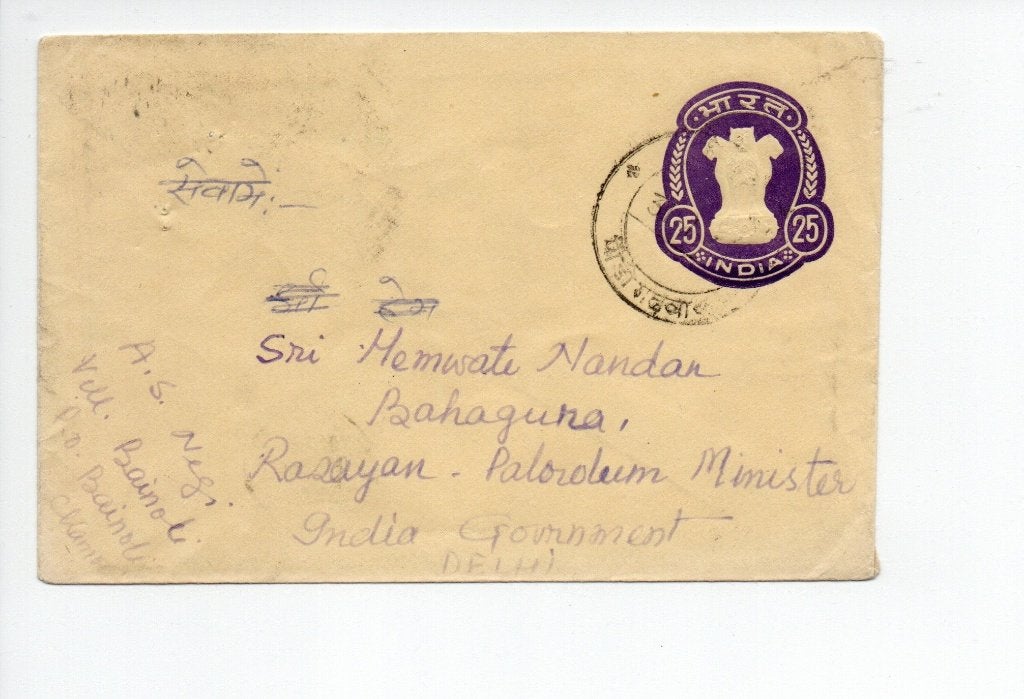 भारत
25 25
INDIA
सेवामे:-
श्री हेम
Sri Hemwate Nandan
Bahaguna,
Rasayan - Paloroleum Minister
India Government
DELHI
A. S. Negi.
Vill. Bainoli.
P.O. Bainoli